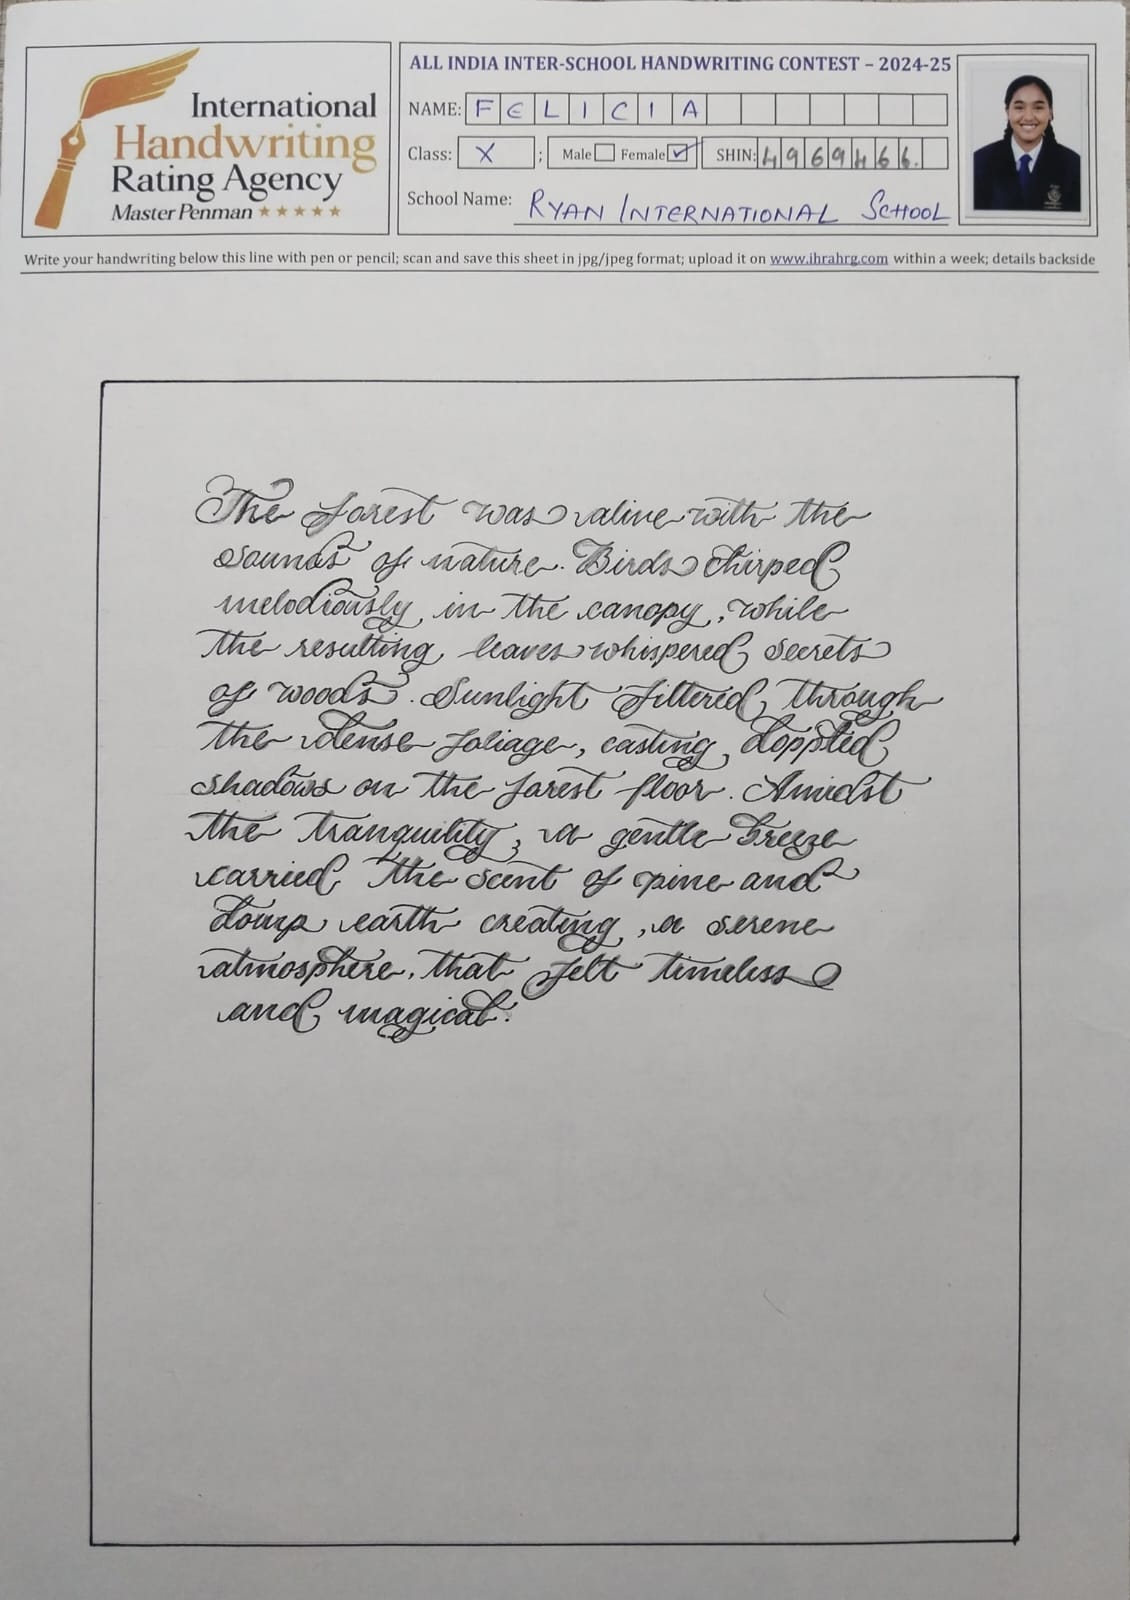 International
Handwriting
Rating Agency
Master Penman ★★★★★
ALL INDIA INTER-SCHOOL HANDWRITING CONTEST – 2024-25
NAME: FELICIA
Class: X ; Male Female ✓ SHIN: 4969466.
School Name: RYAN INTERNATIONAL SCHOOL
Write your handwriting below this line with pen or pencil; scan and save this sheet in jpg/jpeg format; upload it on www.ihrahrg.com within a week; details backside
The forest was alive with the
sounds of nature. Birds chirped
melodiously in the canopy, while
the resulting leaves whispered secrets
of woods. Sunlight filtered through
the dense foliage, casting doppled
shadows on the forest floor. Amidst
the tranquility, a gentle breeze
carried the scent of pine and
damp earth creating, a serene
atmosphere, that felt timeless
and magical.